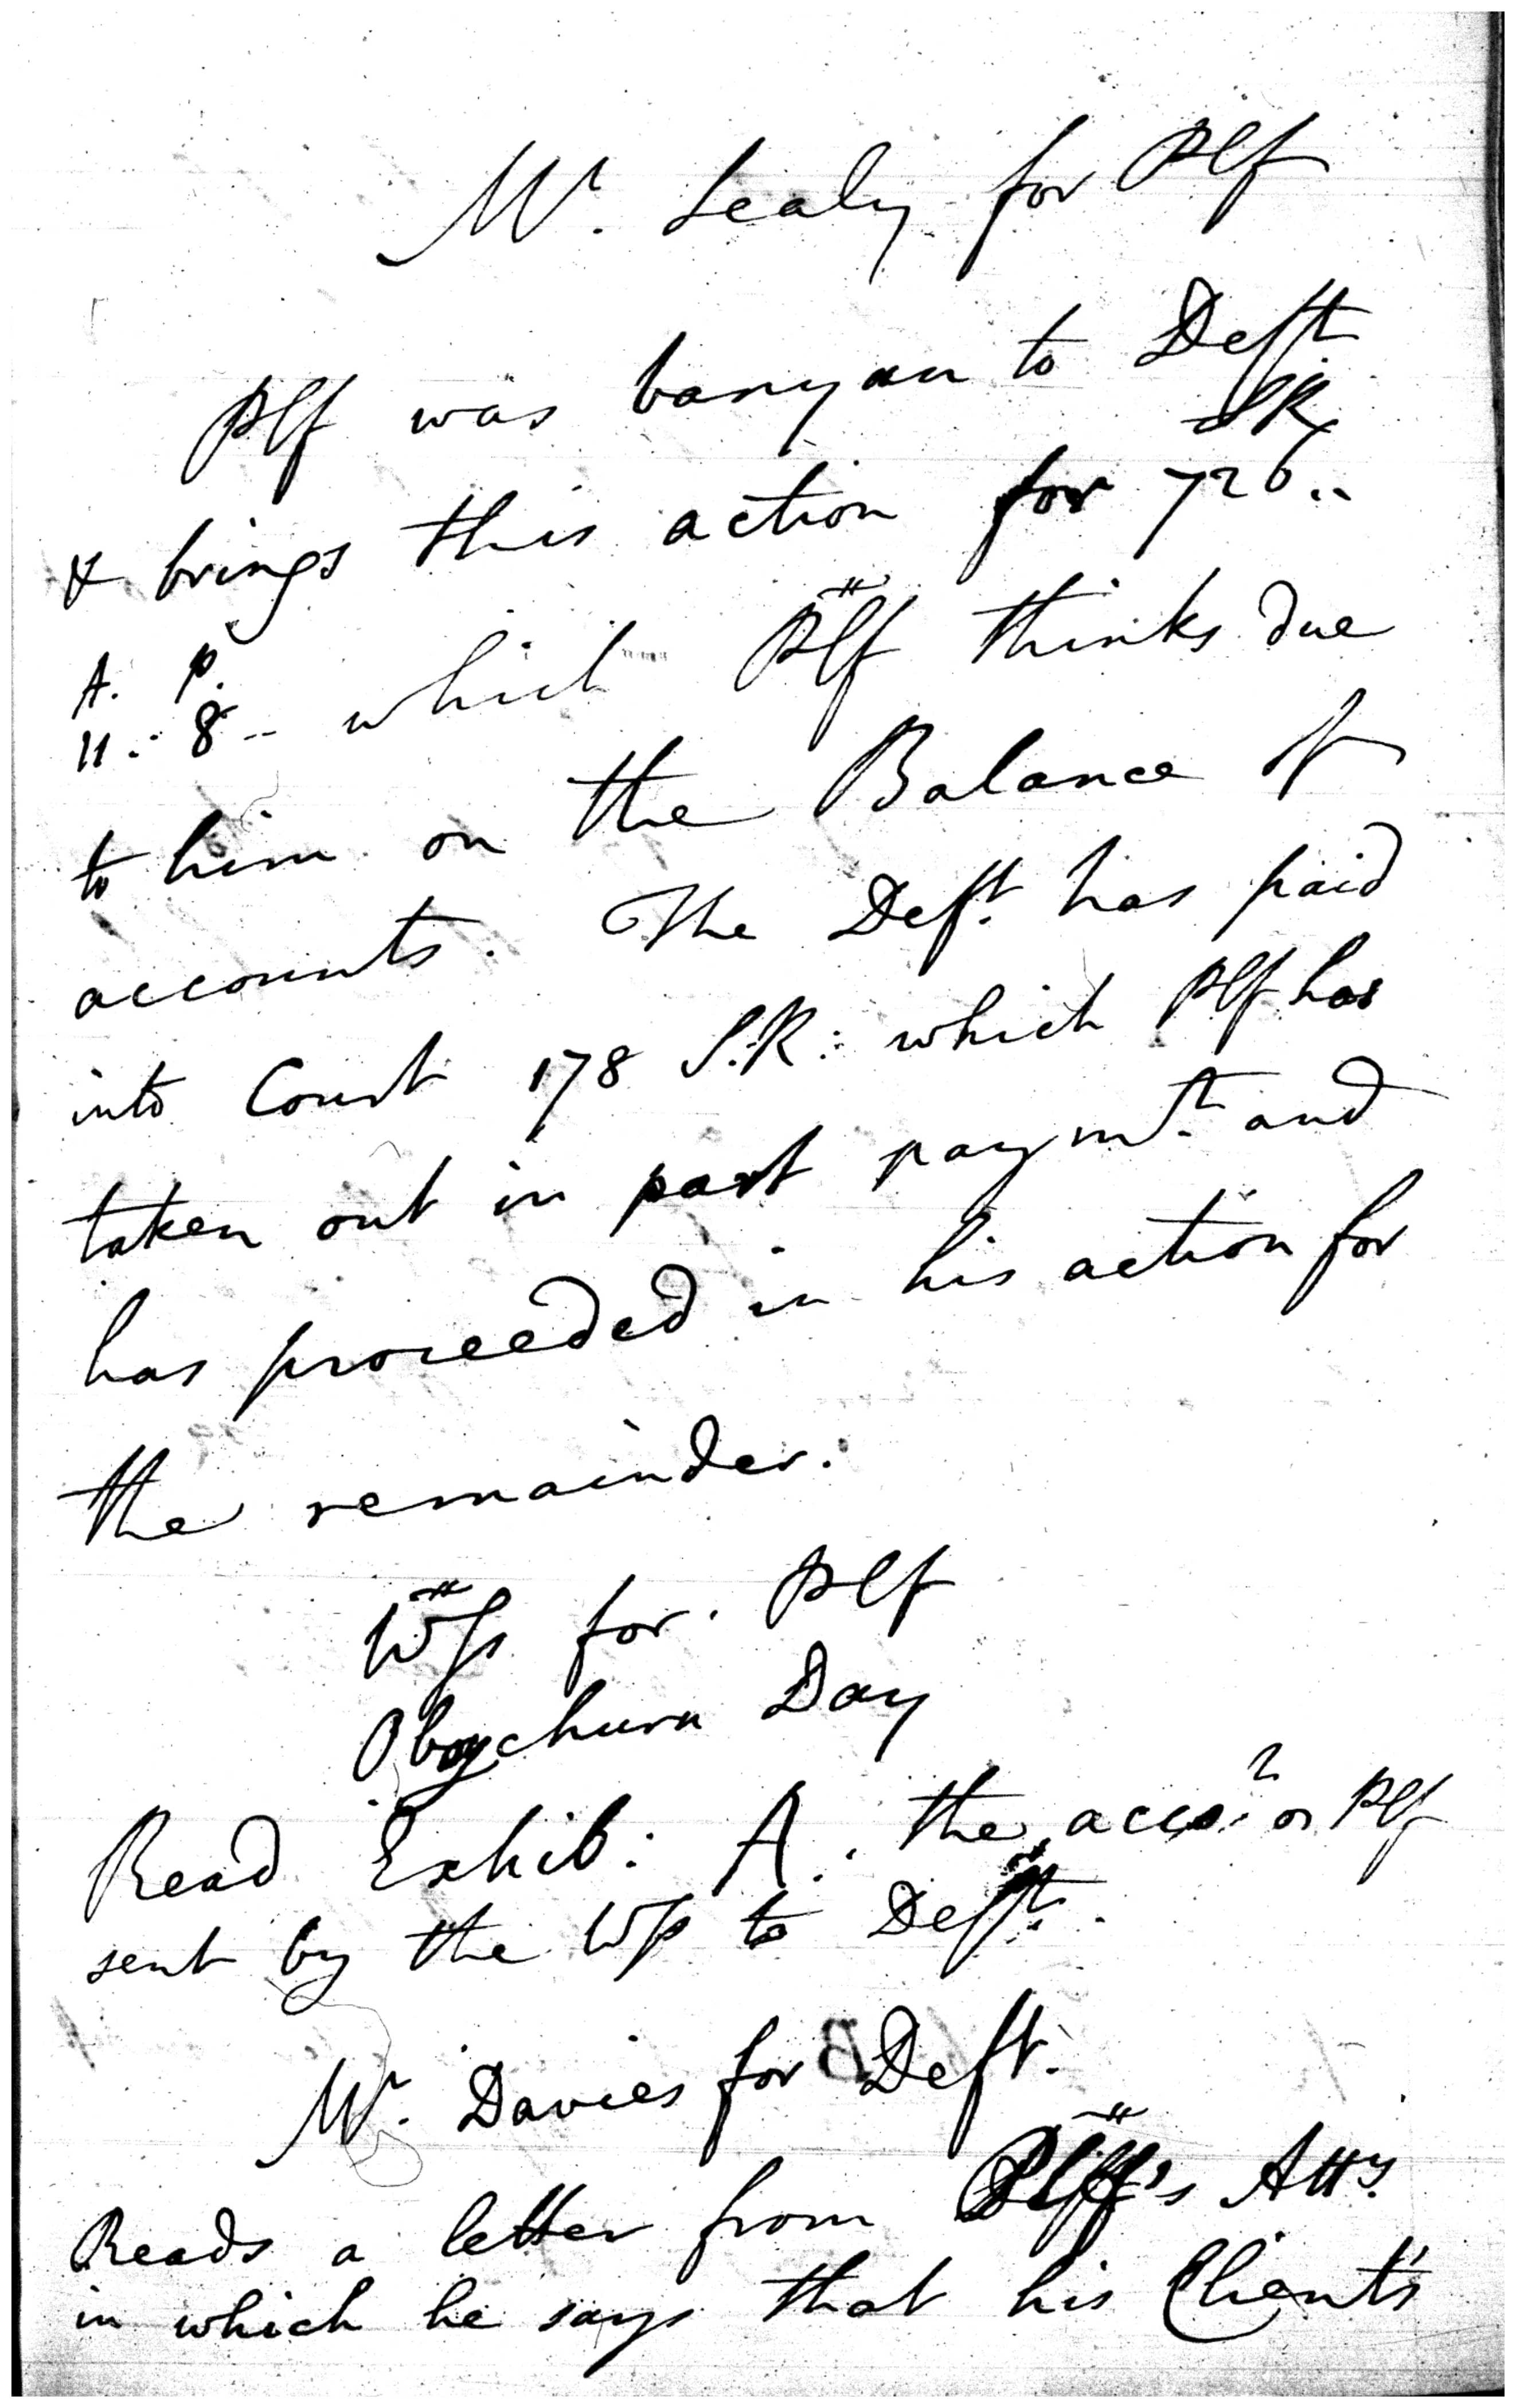 Mr. Sealy for Plf
Plf was banyan to Deft
SR
& brings this action for 726..
A. P.
11.. 8.. which Plf thinks due
to him on the Balance of
accounts. The Deft. has paid
into Court 178 S.R: which Plf has
taken out in part paymt. and
has proceeded in his action for
the remainder.
Ws for Plf
Oboychurn Day
Read Exhib: A. the acco: of Plf
sent by the Ws to Deft.
Mr. Davies for Deft.
Reads a letter from Plff's Atty.
in which he says that his Client's